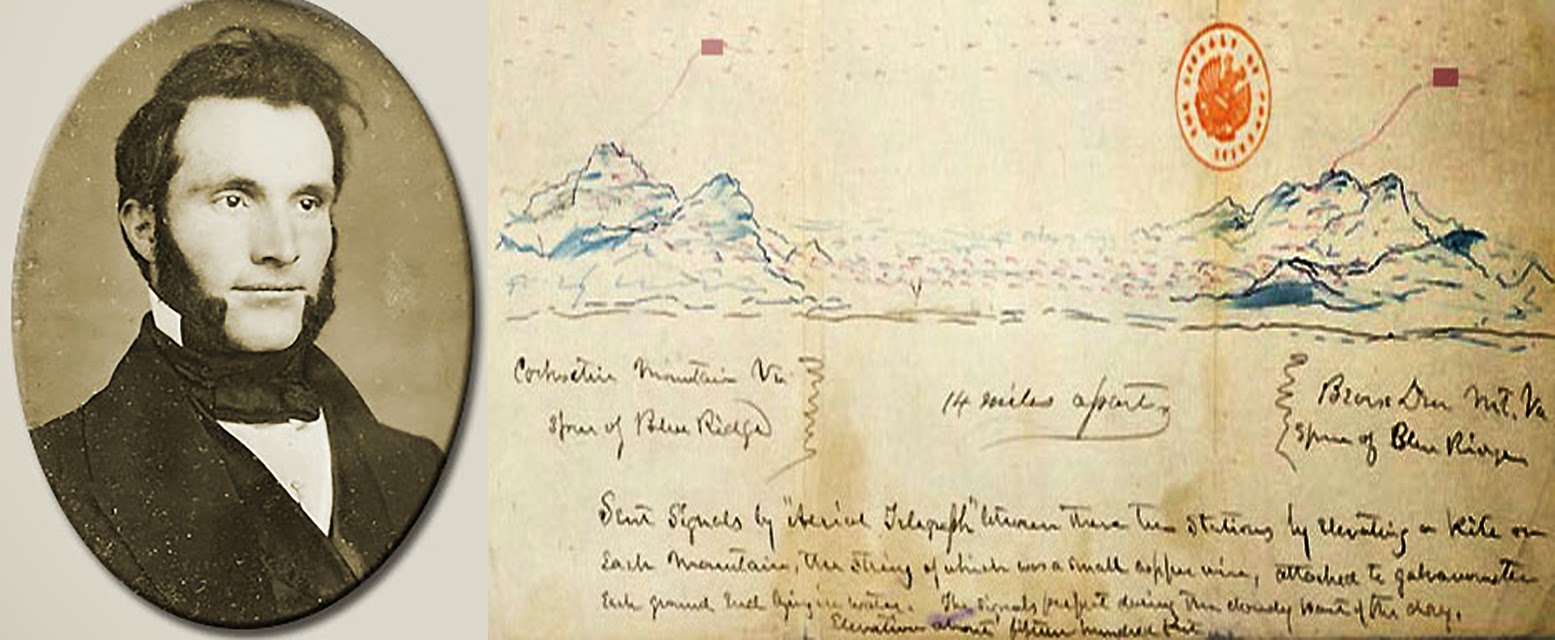 Cohoctin Mountain Va
Spur of Blue Ridge
14 miles apart
Bear's Den Mt. Va
Spur of Blue Ridge
Sent Signals by "Aerial Telegraph" between these two Stations by elevating a Kite on
Each Mountain, the String of which was a small copper wire, attached to galvanometer
Each ground End lying in water. The Signals perfect during the cloudy part of the day.
Elevation about fifteen hundred feet